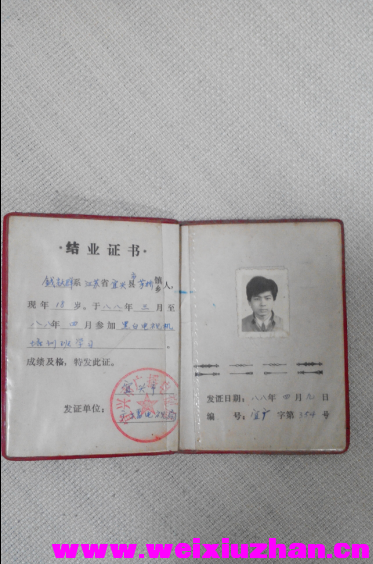 ·结业证书·
系江苏省宜兴县 镇乡 人,
现年18岁。于八八年三月至
八八年四月参加黑白电视机
培训班学习
成绩及格，特发此证。
发证单位：
发证日期：八八年四月 日
编 号：宜 字第 号
www.weixiuzhan.cn